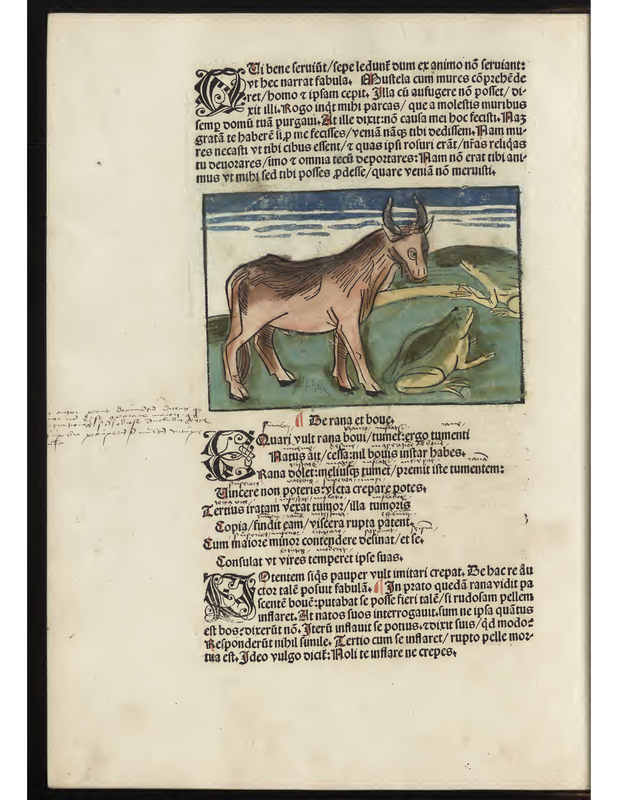 QUi bene seruiūt/sepe ledunt̄ dum ex animo nō seruiant:
vt hec narrat fabula. Mustela cum mures cōprehēde
ret/homo ⁊ ipsam cepit. Illa cū aufugere nō posset/di-
xit illi. Rogo inq̄t mihi parcas/que a molestis muribus
semꝑ domū tuā purgaui. At ille dixit: nō causa mei hoc fecisti. Naȝ
gratā te haberē si ꝓ me fecisses/veniā nāqꝫ tibi dedissem. Nam mu-
res necasti vt tibi cibus essent/⁊ quas ipsi rosuri erāt/nr̄as reliq̄as
tu deuorares/imo ⁊ omnia tecū deportares: Nam nō erat tibi ani-
mus vt mihi sed tibi posses ꝓdesse/quare veniā nō meruisti.
De rana et boue.
EQuari vult rana boui/tumet: ergo tumenti
Natus ait/cessa: nil bouis instar habes.
Rana dolet: meliusqꝫ tumet/premit iste tumentem:
Uincere non poteris: victa crepare potes.
Tertius iratam vexat tumor/illa tumoris
Copia/findit eam/viscera rupta patent.
Cum maiore minor contendere desinat/et se.
Consulat vt vires temperet ipse suas.
POtentem siq̄s pauper vult imitari crepat. De hac re āu
ctor talē posuit fabulā. In prato quedā rana vidit pa
scentē bouē: putabat se posse fieri talē/si rudosam pellem
inflaret. At natos suos interrogauit. sum ne ipsa quātus
est bos: dixerūt nō. Iterū inflauit se potius. ⁊ dixit suis/q̄d modo:
Responderūt nihil simile. Tertio cum se inflaret/rupto pelle mor-
tua est. Ideo vulgo dicit̄: Noli te inflare ne crepes.